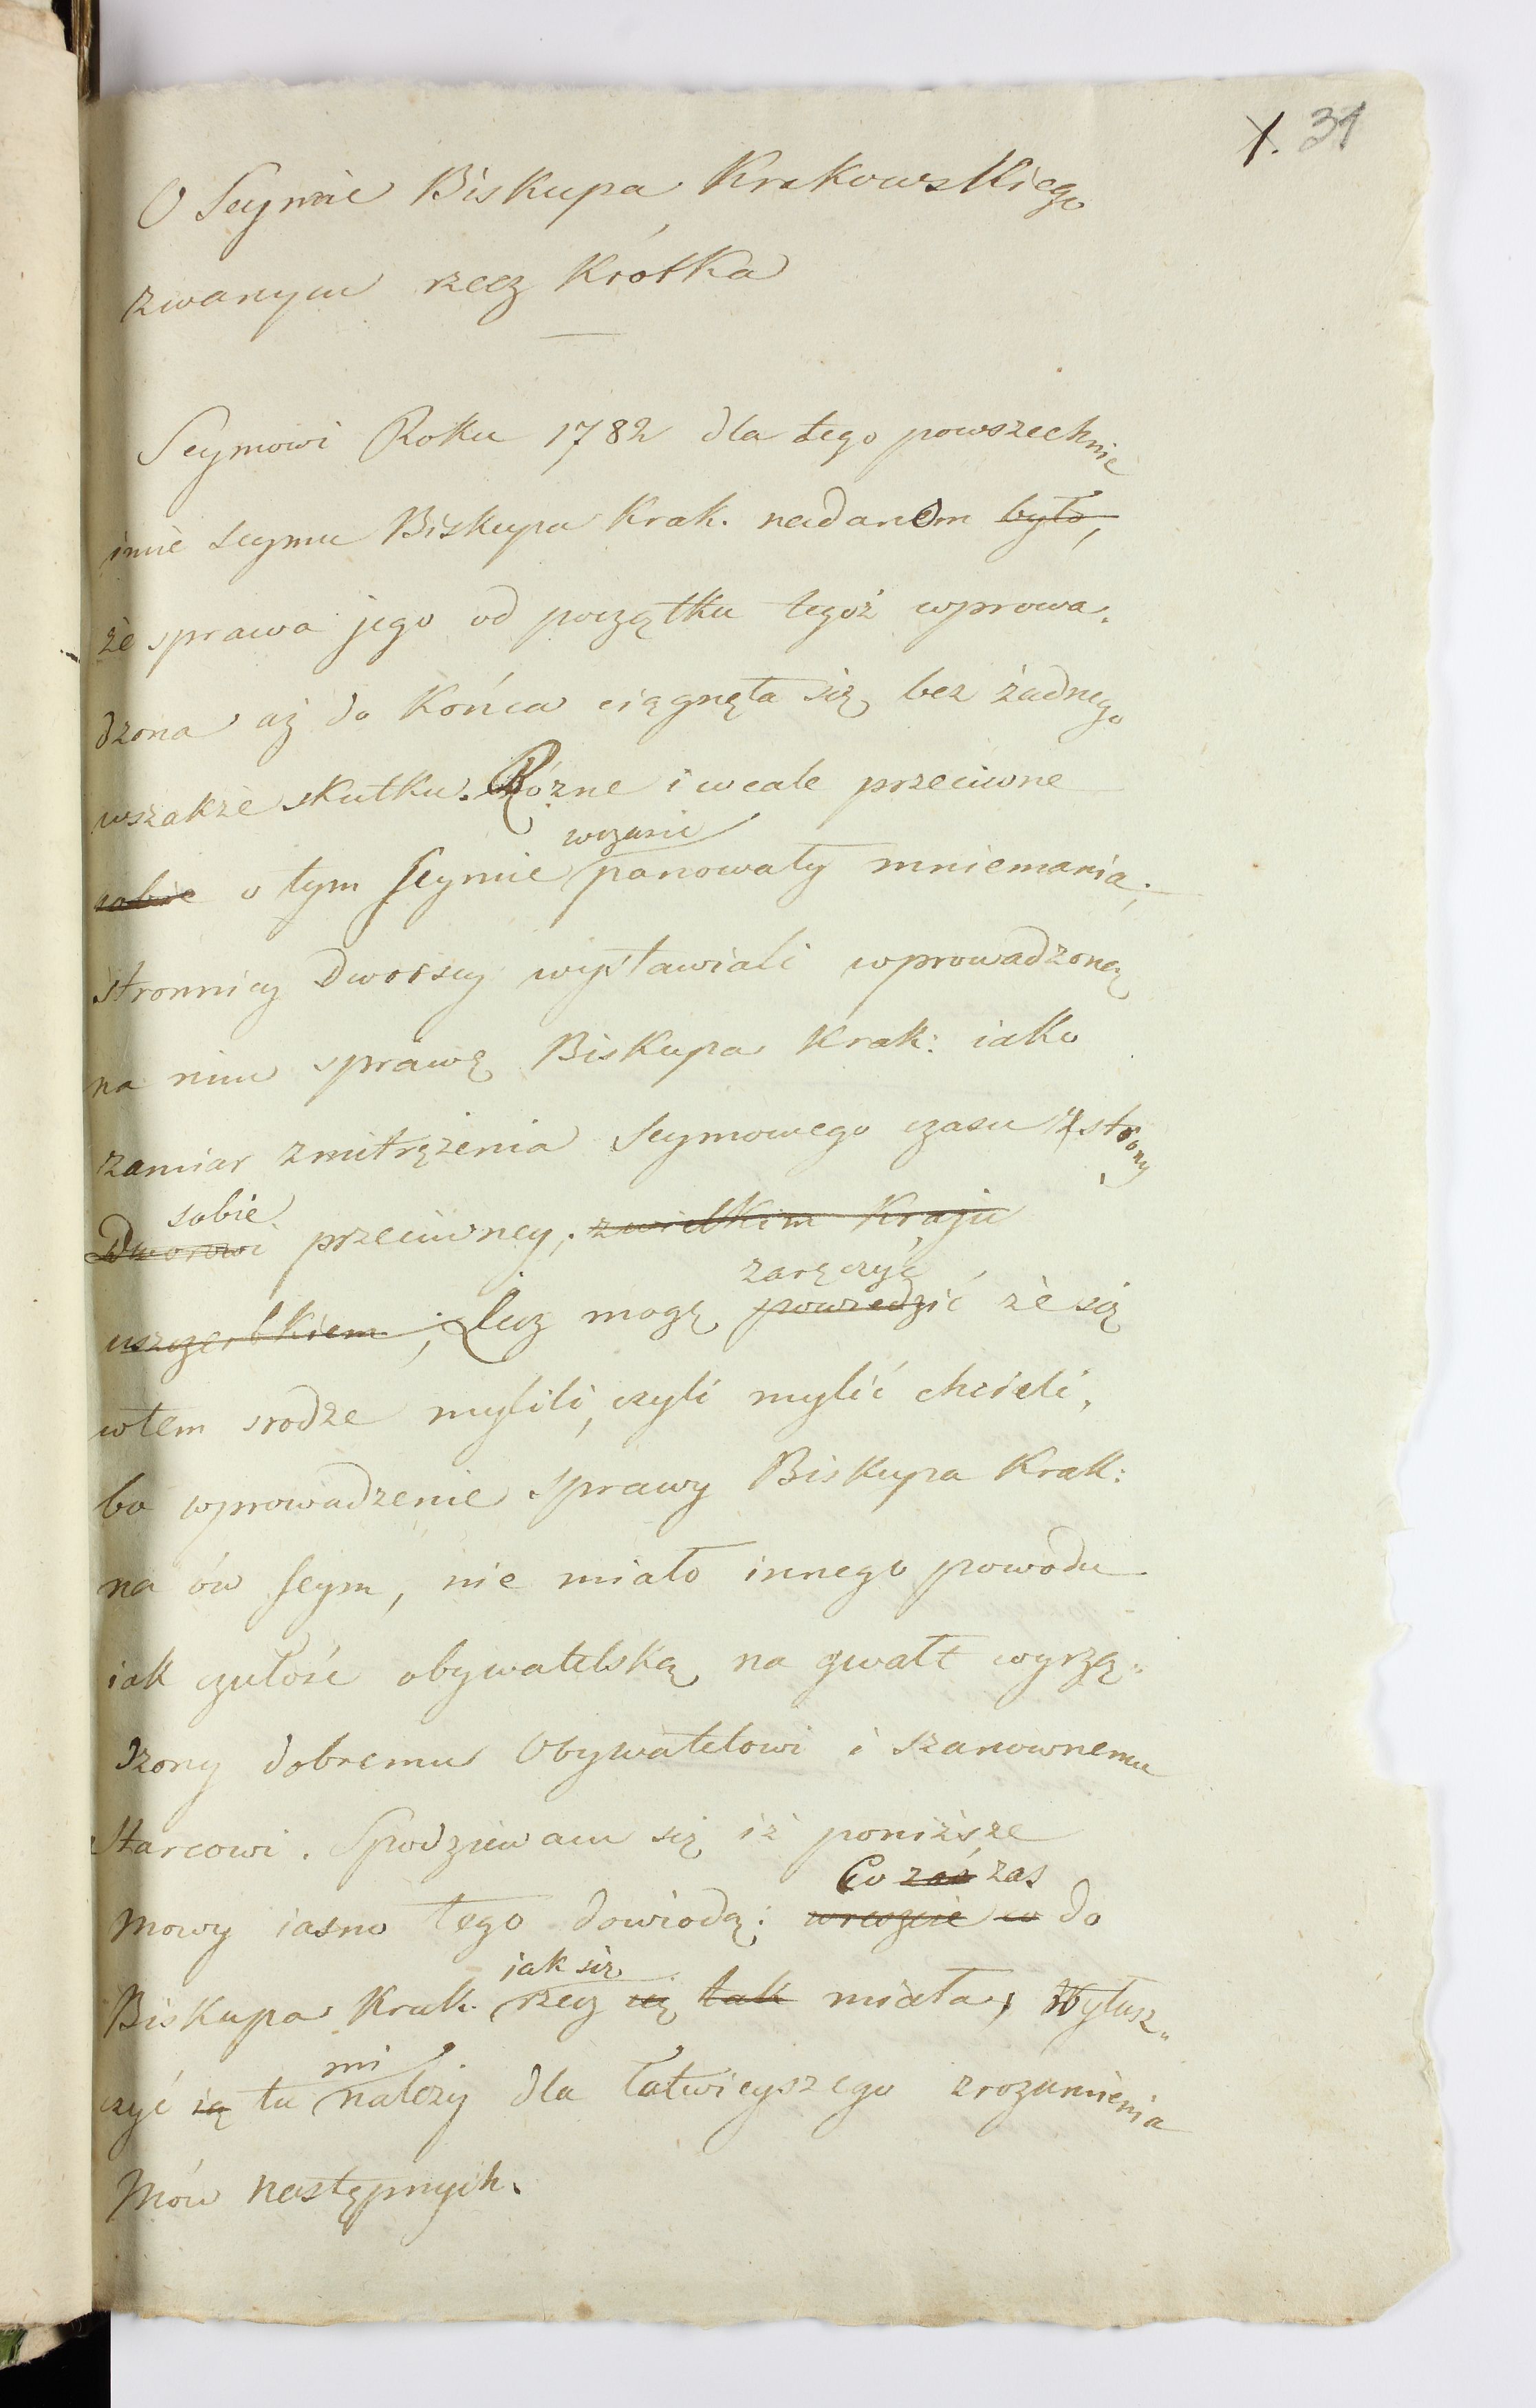 X. 31
O Seymie Biskupa Krakowskiego
zwanym rzecz Krótka
Seymowi Roku 1782 dla tego powszechnie
imie seymu Biskupa Krak. nadanem było,
że sprawa jego od początku tegoż wprowa-
dzona aż do Końca ciągnęła się bez żadnego
wszakże skutku. Rózne i wcale przeciwne
wzanie
sobie o tym Seymie panowały mniemania;
stronnicy Dworscy wystawiali wprowadzoną
na nim sprawę Biskupa Krak: iako
zamiar zmitrężenia Seymowego czasu z strony
sobie
Dworowi przeciwney; zwielkim Kraju
zaręczyć
uszczerbkiem; Lecz mogę powiedzić że się
wtem srodze mylili, czyli mylić chcieli,
bo wprowadzenie sprawy Biskupa Krak:
na ów Seym, nie miało innego powodu
iak czułość obywatelską na gwałt wyrzą-
dzony dobremu Obywatelowi i szanownemu
Starcowi. Spodziewam się iż poniższe
Co zaś zas
Mowy iasno tego dowiodą: wreszcie co do
jak się
Biskupa Krak. rzecz się tak miała, Wyłusz-
mi
czyć ią tu należy dla łatwieyszego zrozumienia
Mów następnych.